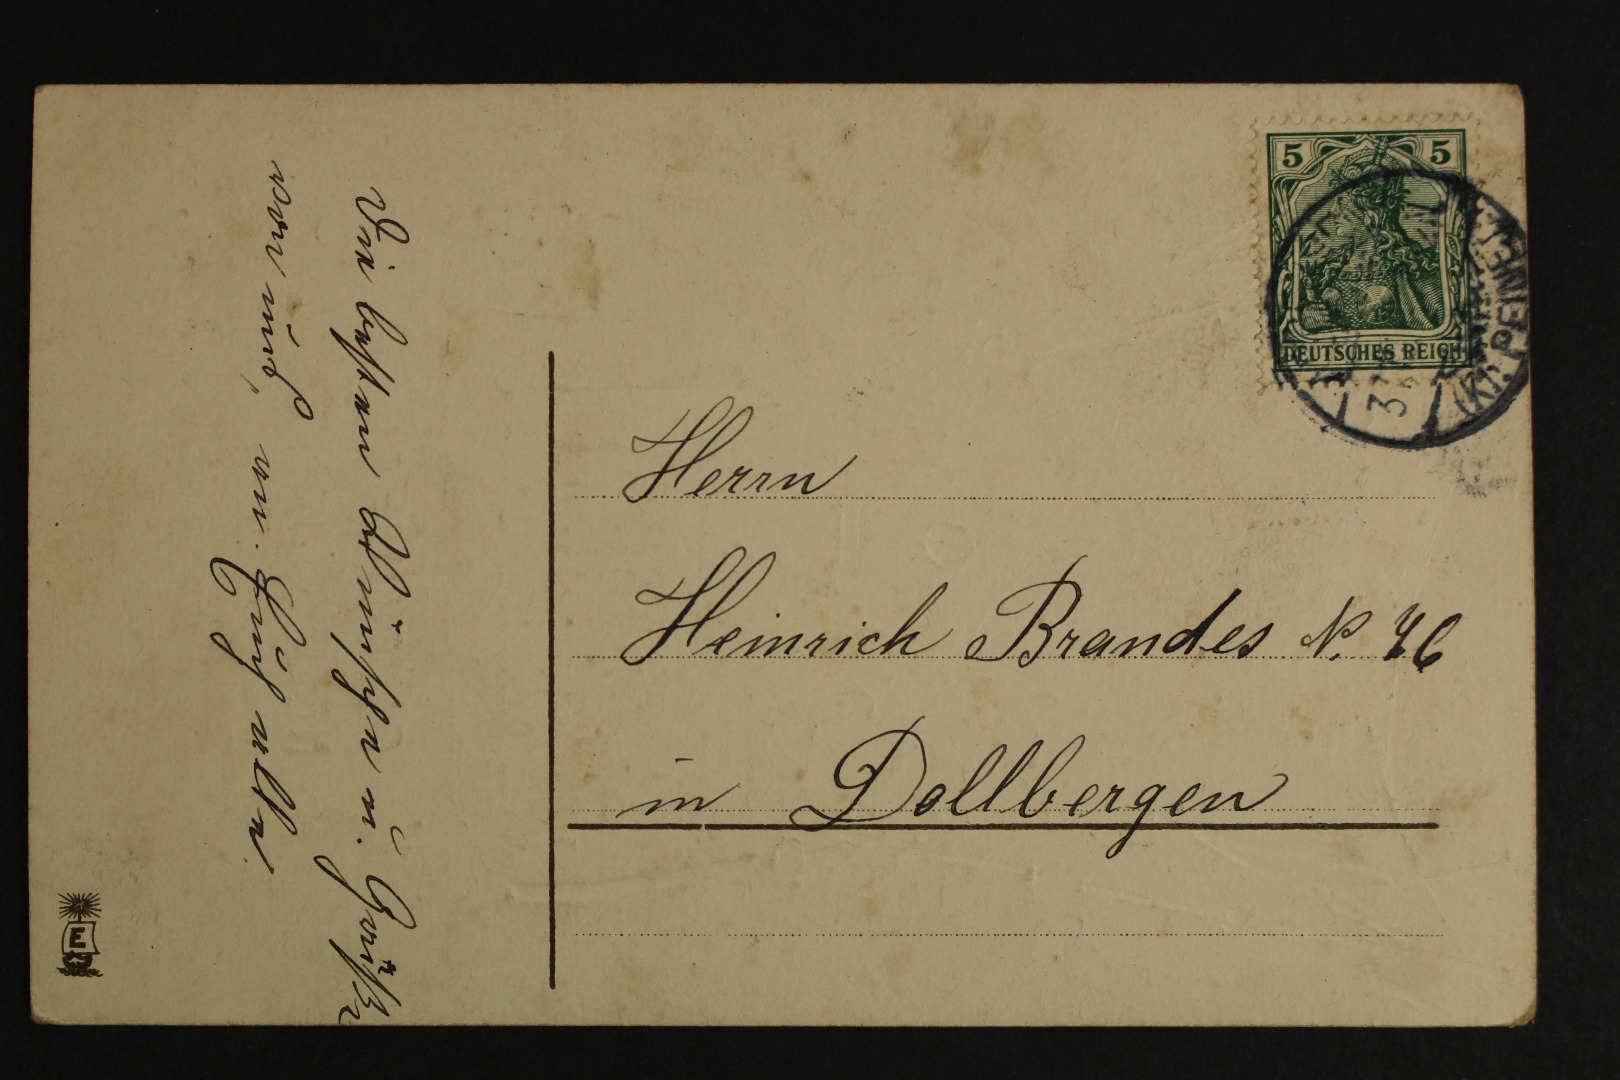 Die besten Wünsche u. Grüße
von uns, an Euch alle.
5 5
DEUTSCHES REICH
(Kr. PEINE)
3
Herrn
Heinrich Brandes N. 46
in Dollbergen
E